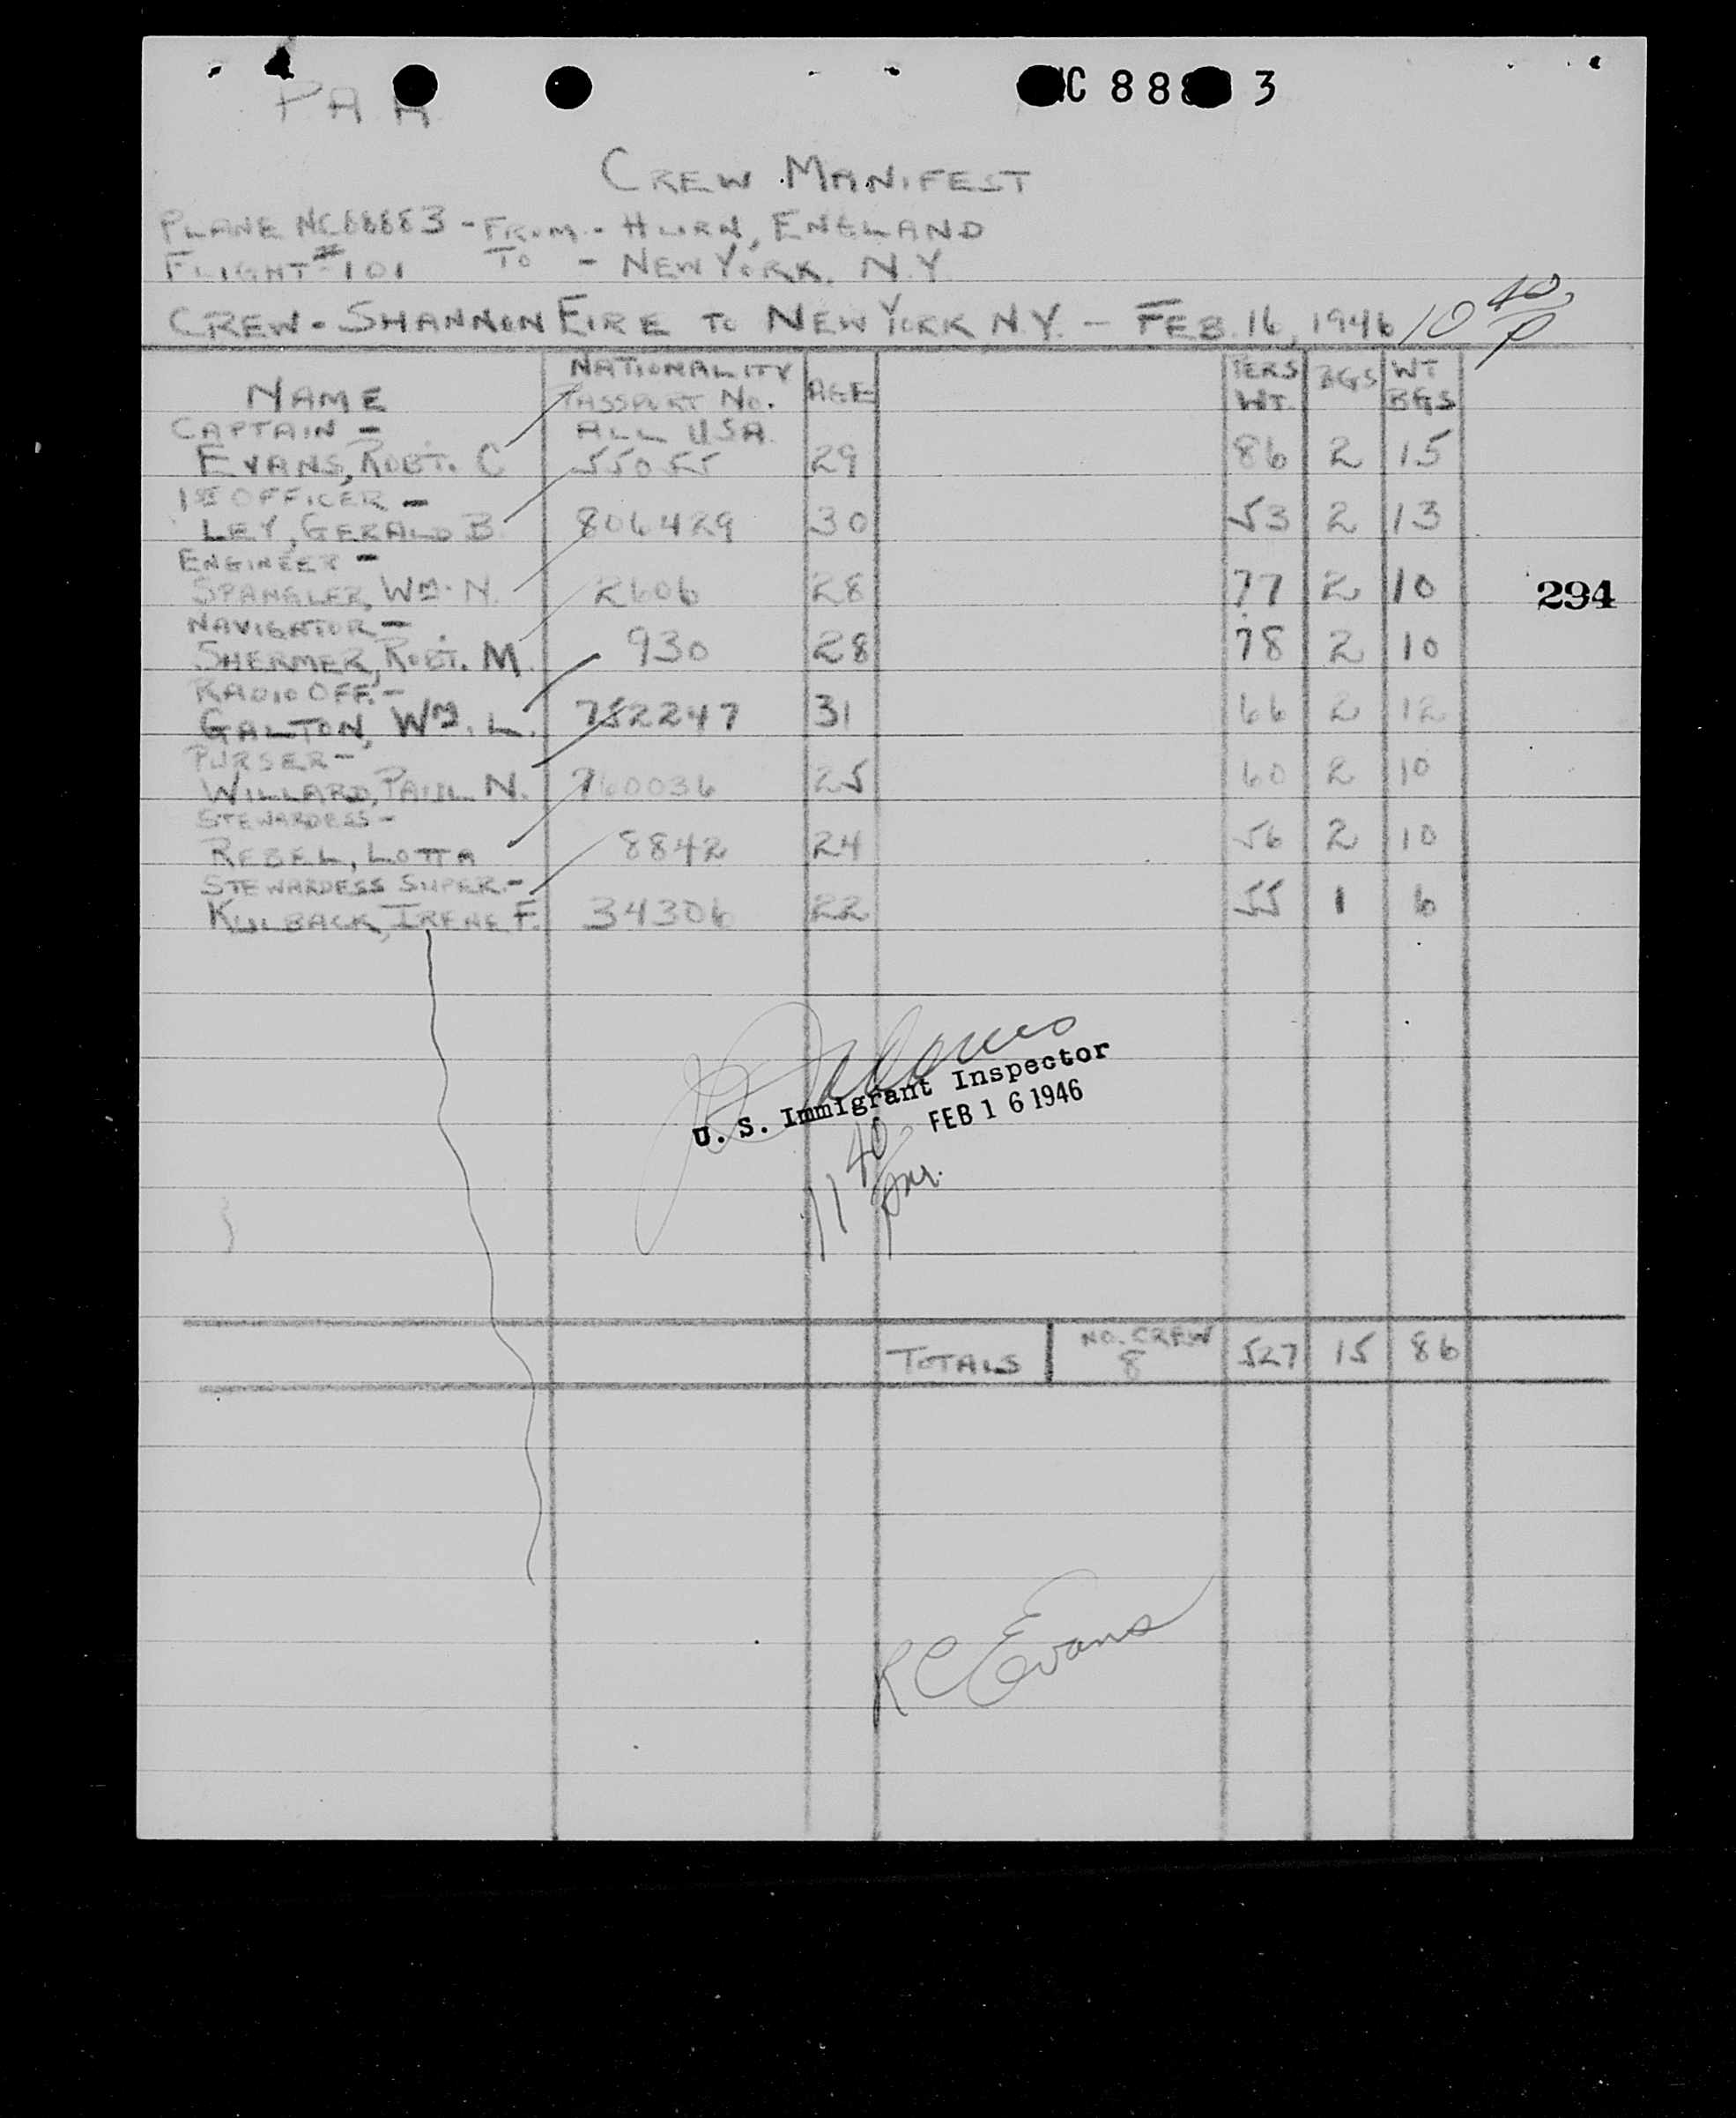 PAA
NC 88 3
CREW MANIFEST
PLANE NC88883 - FROM - HURN, ENGLAND
FLIGHT #101 TO - NEW YORK, N.Y.
CREW - SHANNON EIRE TO NEW YORK N.Y. - FEB. 16, 1946 10 40 P
NAME NATIONALITY PASSPORT NO. AGE PERS WT. BGS WT BGS
CAPTAIN - ALL USA
EVANS, ROBT. C 55055 29 86 2 15
1ST OFFICER -
LEY, GERALD B 806429 30 53 2 13
ENGINEER -
SPANGLER, WM. N. 2606 28 77 2 10
294
NAVIGATOR -
SHERMER, ROBT. M. 930 28 78 2 10
RADIO OFF. -
GALTON, WM. L. 752247 31 66 2 12
PURSER -
WILLARD, PAUL N. 760036 25 60 2 10
STEWARDESS -
REBEL, LOTTA 8842 24 56 2 10
STEWARDESS SUPER. -
KULBACK, IRENE F. 34306 22 55 1 6
U. S. Immigrant Inspector
FEB 16 1946
11 40 pm.
TOTALS NO. CREW 8 527 15 86
RC Evans